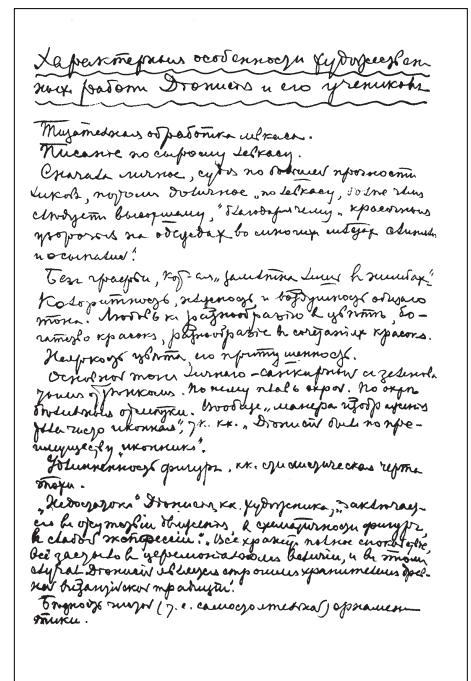 Характерныя особенности художествен
ных работ Дионисия и его учеников
Тщательная обработка левкаса.
Писание по сырому левкасу.
Сначала личное, судя по большей прочности
ликов, потом доличное "по левкасу, более чем
следует высохшему", "благодаря чему" красочныя
на одеждах во многих местах
и осыпались.
Без графьи, "заметна лишь в нимбах"
Колоритность, нежность и воздушность общаго
тона. Любовь к разнообразию в цвете, бо-
гатство красок, разнообразие в сочетаниях красок.
Неяркость цвета, его притушенность.
Основной тон личнаго - санкирный с зеленова
тым оттенком. По нему плавь охрой. По охре
Вообще, "манера изображения
была чисто иконная", т.к. "Дионисий был по пре-
имуществу "иконник".
Удлиненность фигур, кк. стилистическая черта
эпохи.
"Недостаток" Дионисия, кк. художника, "заключает-
ся в отсутствии движения, в схематичности фигур,
в слабой экспрессии". "Все хранит полное спокойствие,
всё застыло в церемониальном величии, и в этом
случае Дионисий является строгим хранителем древ-
ней византийской традиции".
Бедность чистой (т.е. самостоятельной) орнамен
тики.